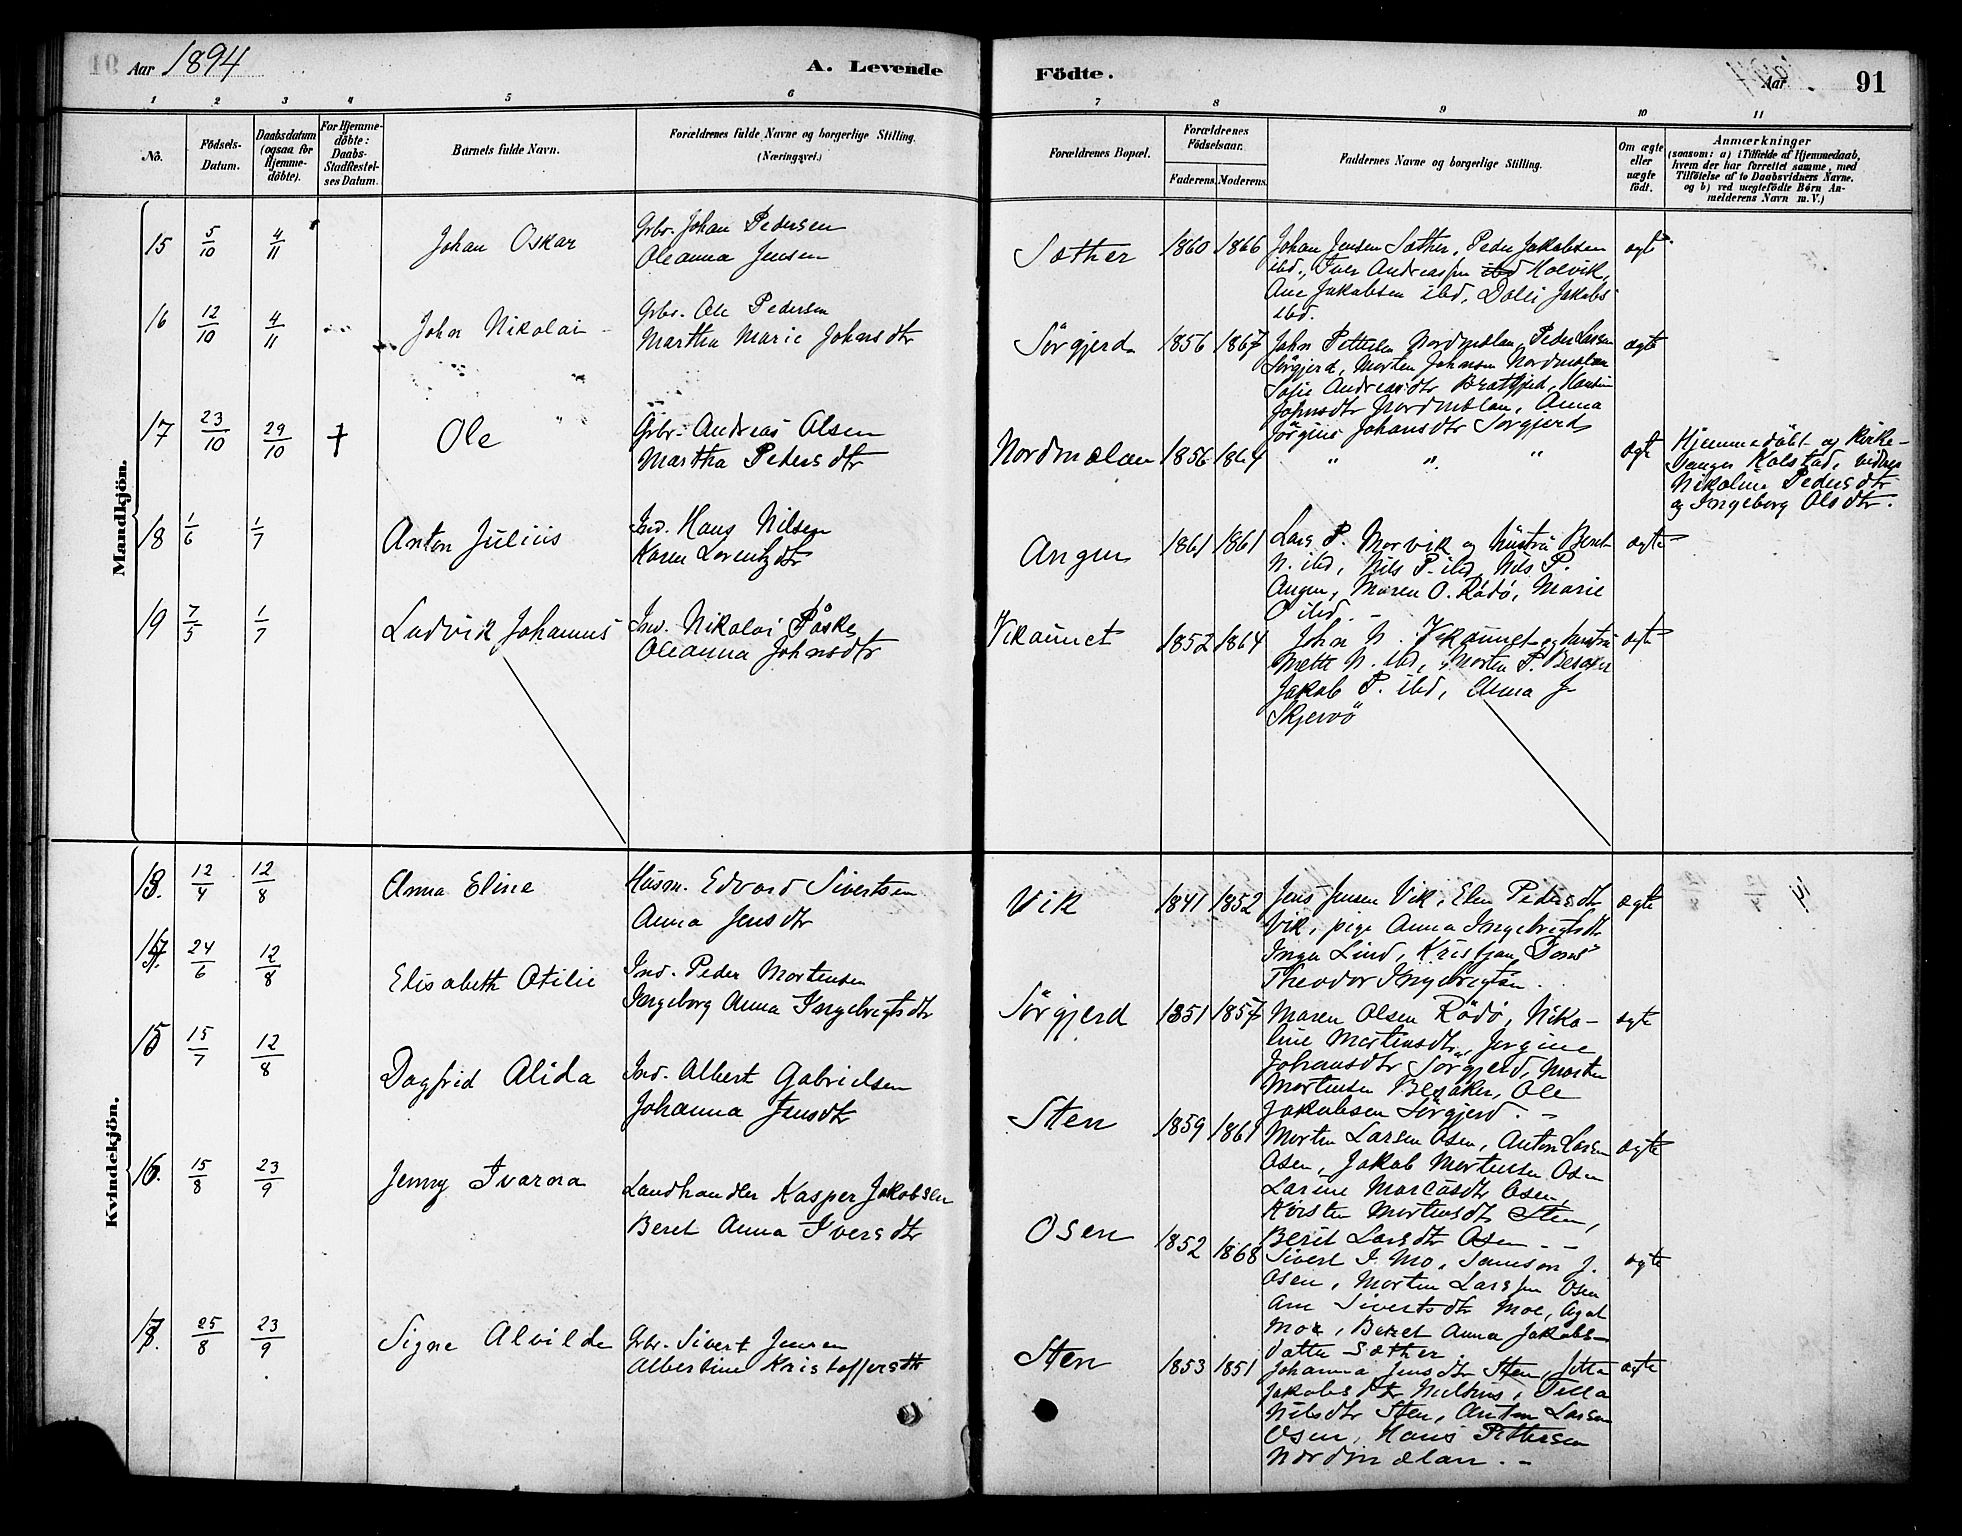 Aar 1894
A. Levende
Födte.
Aar
91
1 2 3 4 5 6 7 8 9 10 11
No.
Födsels-
Datum.
Daabsdatum
(ogsaa for
Hjemme-
döbte).
For Hjemme-
döbte:
Daabs-
Stadfæstel-
ses Datum.
Barnets fulde Navn.
Forældrenes fulde Navne og borgerlige Stilling.
(Næringsvei.)
Forældrenes Bopæl.
Forældrenes
Födselsaar.
Faderens. Moderens.
Faddernes Navne og borgerlige Stilling.
Om ægte
eller
uægte
födt.
Anmærkninger
(saasom: a) i Tilfælde af Hjemmedaab,
hvem der har forrettet samme, med
Tilföielse af to Daabsvidners Navne.
og b) ved uægtefödte Börn An-
melderens Navn m.V.)
Mandkjön.
15 5/10 4/11 Johan Oskar
Grbr. Johan Pedersen
Oleanna Jensen
Sæther 1860 1866
Johan Jensen Sæther, Peder Jakobsen
ibd., Iver Andreassen ibd Holvik,
Ane Jakobsen ibd, Jakobs
ibd.
ægte
16 12/10 4/11 John Nikolai
Grbr. Ole Pedersen
Martha Marie Johnsdtr
Sörgjerd 1856 1867
John Pettersen Nordmælan, Peder Larsen
Sörgjerd, Morten Johnsen Nordmælan
Sofie Andreasdtr Brattjerd,
Johnsdtr Nordmælan, Anna
Jörgine Johansdtr Sörgjerd
ægte
17 23/10 29/10 + Ole
Grbr. Andreas Olsen
Martha Pedersdtr
Nordmælan 1856 1864
" " "
ægte
Hjemmedöbt og Kirke-
sanger Kolstad, vidner
Nikoline Pedersdtr
og Ingeborg Olsdtr.
18 1/6 1/7 Anton Julius
Ind. Hans Nilsen
Karen Lorentzdtr
Angen 1861 1861
Lars P. Morvik og hustru Beret
N. ibd, Nils P. ibd, Nils P.
Angen, Maren O. Rödö, Marie
O ibd. -
ægte
19 7/5 1/7 Ludvik Johannes
Ind. Nikolai Påske
Oleanna Johnsdtr
Vikaunet 1852 1864
John N. Vikaunet og hustru
Mette N. ibd, Morten P. Besaker
Jakob P. ibd, Anna J.
Skjervö
ægte
Kvindekjön.
13. 12/4 12/8 Anna Eline
Husm. Edvard Sivertsen
Anna Jensdtr
Vik 1841 1852
Jens Jensen Vik, Elen Pedersdtr
Vik, pige Anna Ingebrigtsdtr
Inga Lind, Kristjan
Theodor Ingebrigtsen.
ægte
14. 24/6 12/8 Elisabeth Otilie
Ind. Peder Mortensen
Ingeborg Anna Ingebrigtsdtr
Sörgjerd 1851 1857
Maren Olsen Rödö, Niko-
line Mortensdtr, Jörgine
Johansdtr Sörgjerd, Morten
Mortensen Besaker, Ole
Jakobsen Sörgjerd. -
ægte
15 15/7 12/8 Dagfrid Alida
Ind. Albert Gabrielsen
Johanna Jensdtr
Sten 1859 1861
Morten Larsen Osen, Anton Larsen
Osen, Jakob Mortensen Osen
Larine Marcusdtr Osen,
Kirsten Mortensdtr Sten,
Berit Larsdtr Osen - -
ægte
16. 15/8 23/9 Jenny Ivarna
Landhandler Kasper Jakobsen
Beret Anna Iversdtr
Osen 1852 1868
Sivert I. Mo, Samson J.
Osen, Morten Larssen Osen
Ane Sivertsdtr Moe, Agat
Moe, Beret Anna Jakobs-
datter Sæther
ægte
17. 25/8 23/9 Signe Alvilde
Grbr. Sivert Jensen
Albertine Kristoffersdtr
Sten 1853 1851
Johanna Jensdtr Sten, Jetta
Jakobsdtr
Nilsdtr Sten, Anton Larsen
Osen, Hans Pettersen
Nordmælan. -
ægte